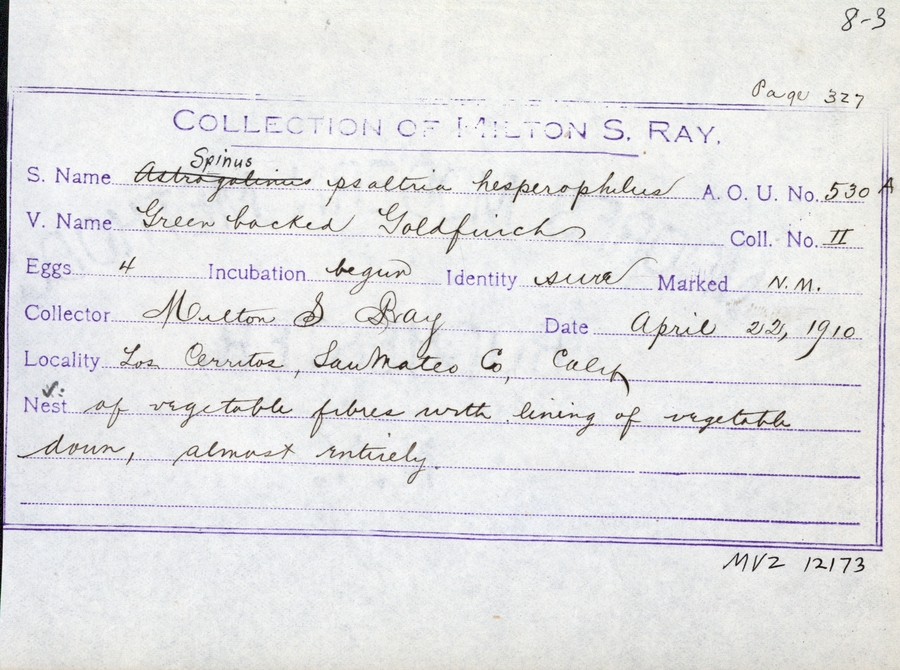 8-3
Page 327
COLLECTION OF MILTON S. RAY.
Spinus
S. Name Astragalinus psaltria hesperophilus A. O. U. No. 530 A
V. Name Green backed Goldfinch Coll. No. II
Eggs 4 Incubation begun Identity sure Marked N.M.
Collector Milton S Ray Date April 22, 1910
Locality Los Cerritos, San Mateo Co, Calif
Nest of vegetable fibres with lining of vegetable
down, almost entirely.
MVZ 12173